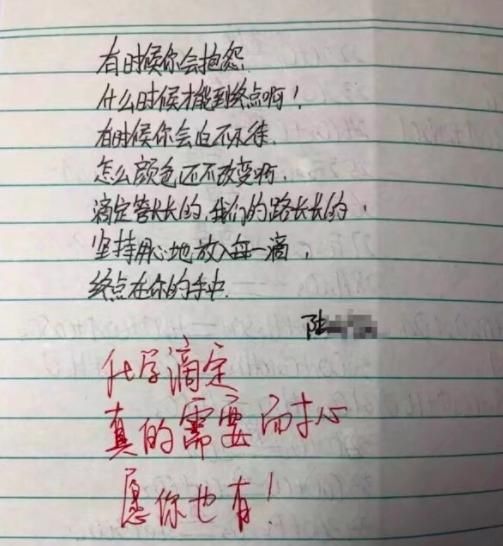 有时候你会抱怨
什么时候才能到终点啊!
有时候你会迫不及待.
怎么颜色还不改变啊.
滴定管长长的,我们的路长长的,
坚持用心地放入每一滴,
终点在你的手中.
陆
化学滴定
真的需要耐心
愿你也有!